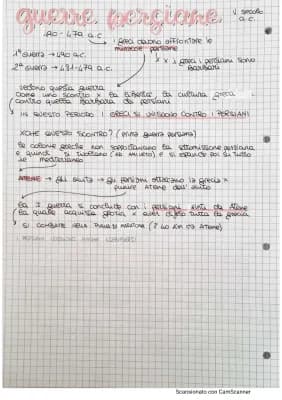 guerre persiane
V secolo a.c.
490 - 479 a.c.
i greci devono affrontare le
minacce persiane
1ª guerra → 490 a.c.
2ª guerra → 481-479 a.c.
x i greci i persiani sono
barbari
vedono questa guerra
come uno scontro x la libertà, la cultura greca
contro quella barbara dei persiani
IN QUESTO PERIODO I GRECI SI UNISCONO CONTRO I PERSIANI
XCHE QUESTO SCONTRO? (prima guerra persiana)
le colonie greche non sopportavano la sottomissione persiana
e quindi si ribellano (ad mileto) e si espande poi su tutto
il mediterraneo
ATENE → gli aiuta → gli persiani attaccano la grecia x
punire Atene dell'aiuto
la guerra si conclude con i persiani vinti da Atene
la quale acquista gloria x aver difeso tutta la grecia
SI COMBATTE NELLA PIANA DI MARATONA (40 km da Atene)
Scansionato con CamScanner